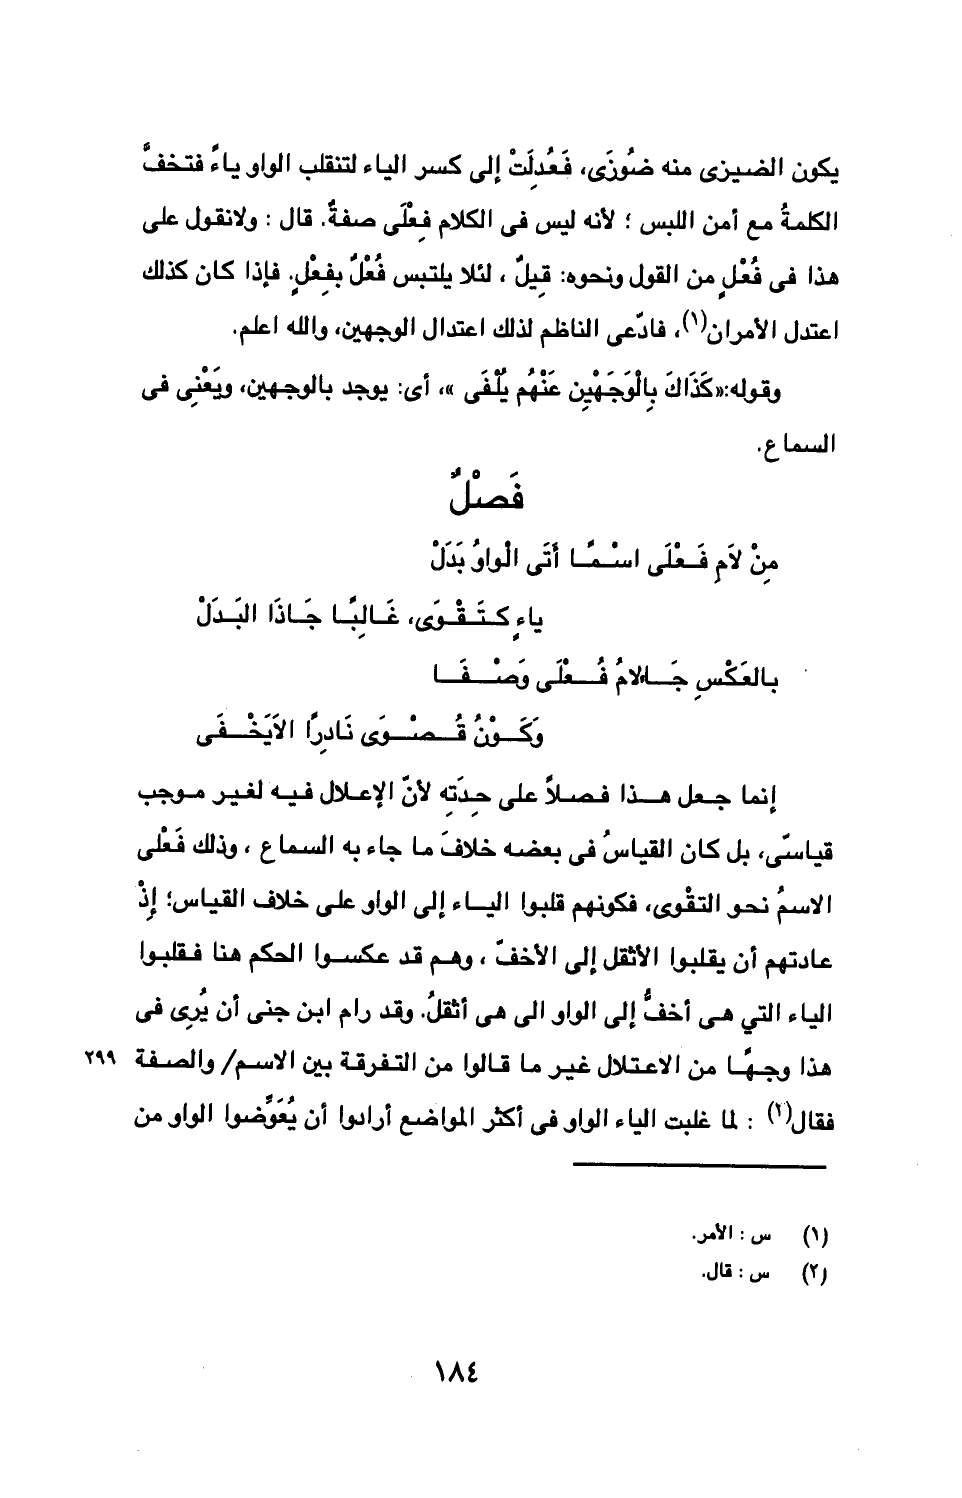 يكون الضيزى منه ضُوزَى، فَعُدِلَتْ إلى كسر الياء لتنقلب الواو ياءً فتخفُّ
الكلمةُ مع أمن اللبس ؛ لأنه ليس فى الكلام فِعْلَى صفةٌ. قال : ولانقول على
هذا فى فُعْلٍ من القول ونحوه: قِيلٌ ، لئلا يلتبس فُعْلٌ بفِعْلٍ. فإذا كان كذلك
اعتدل الأمران(١)، فادّعى الناظم لذلك اعتدال الوجهين، والله اعلم.
وقوله:«كَذَاكَ بِالْوَجَهْيِن عَنْهُم يُلْفَى »، أى: يوجد بالوجهين، ويَعْنِى فى
السماع.
فَصْلٌ
مِنْ لاَمِ فَعْلَى اسْمًا أَتَى الْواوُ بَدَلْ
ياءٍ كَتَقْوَى، غَالِبًا جَاذَا البَدَلْ
بالعَكْسِ جَاءلامُ فُعْلَى وَصْفَا
وَكَوْنُ قُصْوَى نَادِرًا الاَيَخْفَى
إنما جعل هذا فصلاً على حِدَتِه لأنّ الإعلال فيه لغير موجب
قياسىّ، بل كان القياسُ فى بعضه خلافَ ما جاء به السماع ، وذلك فَعْلى
الاسمُ نحو التقْوى، فكونهم قلبوا الياء إلى الواو على خلاف القياس؛ إذْ
عادتهم أن يقلبوا الأثقل إلى الأخفّ ، وهم قد عكسوا الحكم هنا فقلبوا
الياء التي هى أخفُّ إلى الواو الى هى أثقلُ. وقد رام ابن جنى أن يُرِى فى
هذا وجهًا من الاعتلال غير ما قالوا من التفرقة بين الاسم/ والصفة ٢٩٩
فقال(٢) : لما غلبت الياء الواو فى أكثر المواضع أرادوا أن يُعَوِّضوا الواو من
(١) س : الأمر.
(٢) س : قال.
١٨٤